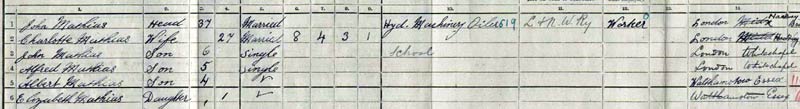 1 John Mathius Head 37 Married Hyd. Machinery Oiler 519 L & N. W. Ry Worker London Hackney
2 Charlotte Mathius Wife 27 Married 8 4 3 1 London Hackney
3 John Mathius Son 6 Single School London Whitechapel
4 Alfred Mathius Son 5 Single London Whitechapel
5 Albert Mathius Son 4 Walthamstow Essex
6 Elizabeth Mathius Daughter 1 Walthamstow Essex